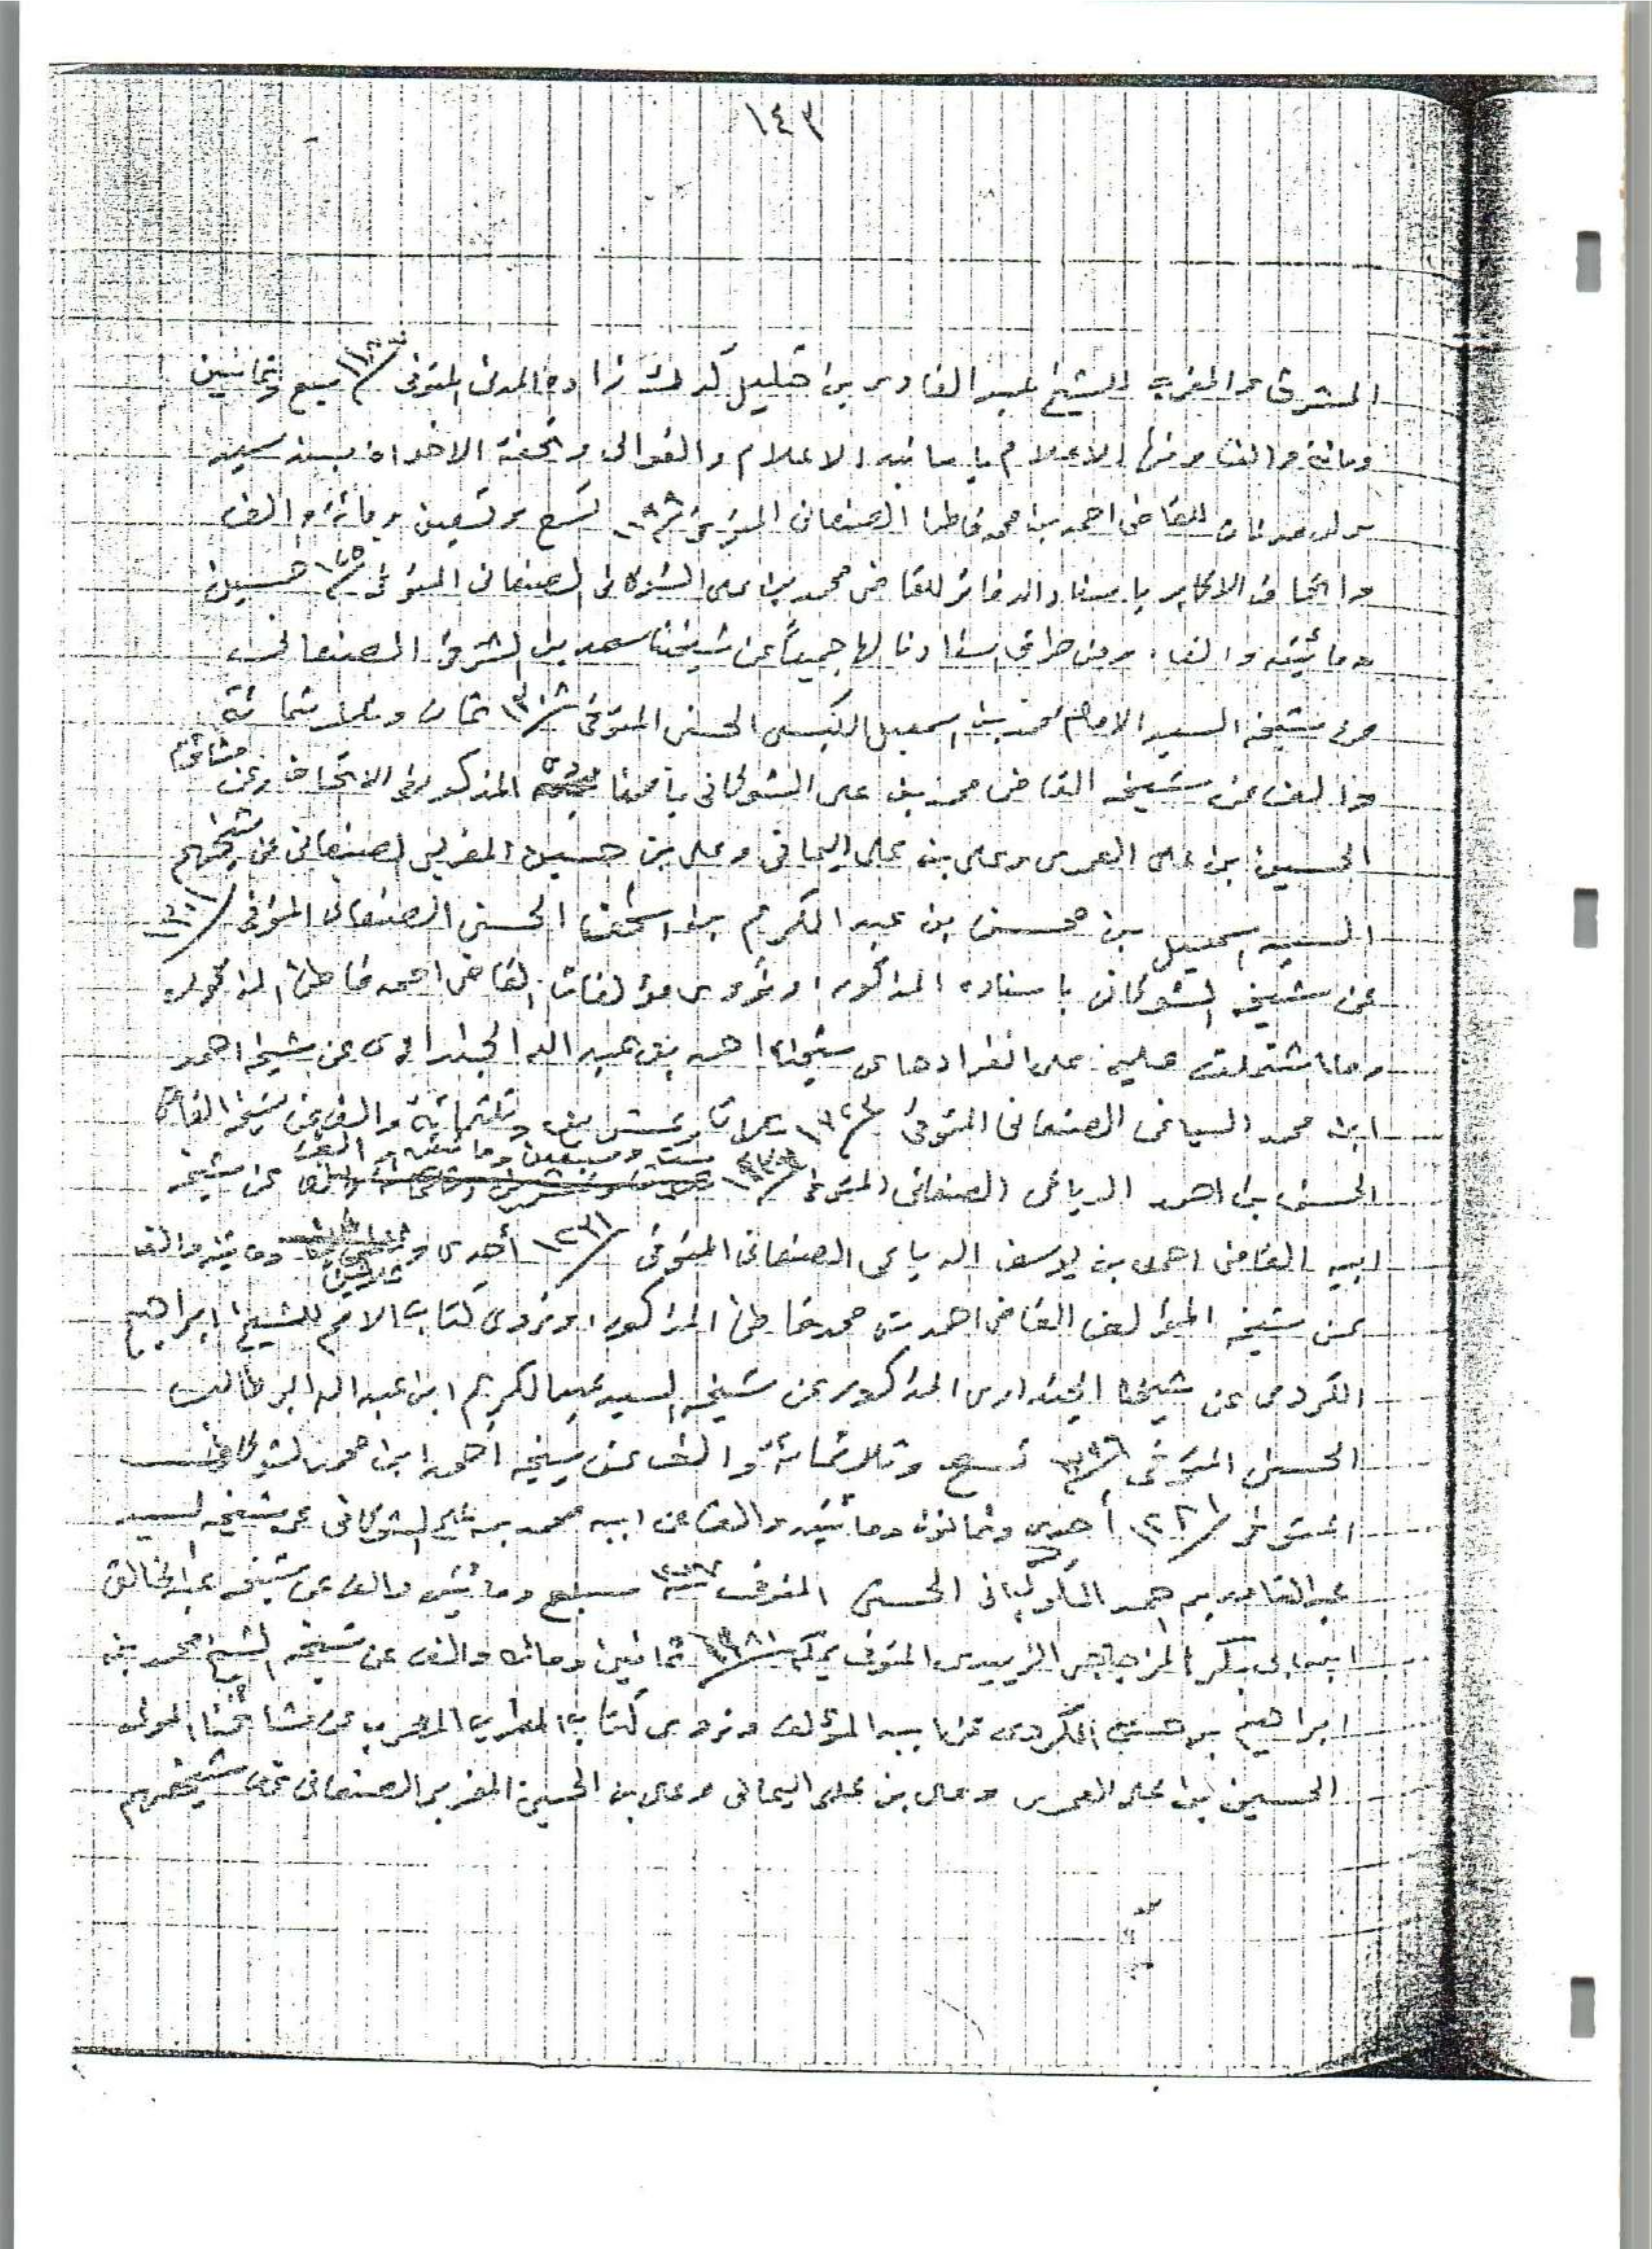 ١٤٣
المشرق والمغرب للشيخ عبد القادر بن خليل كدك زاده المدني المتوفى سنة ١١٨٧ سبع وثمانين
ومائة والف ومنها الاعلام باسانيد الاعلام والعوالي وتحفة الاخوان بسند سيد
ولد عدنان للقاضي احمد بن محمد قاطن الصنعاني المتوفى سنة ١١٩٩ تسع وتسعين ومائة والف
واتحاف الاكابر باسناد الدفاتر للقاضي محمد بن على الشوكاني الصنعاني المتوفى سنة ١٢٥٠ خمسين
ومائتين والف، ومن طرق اسنادنا لها جميعاً عن شيخنا سعد بن الشرقي الصنعاني
عن شيخه السيد الامام محمد بن اسمعيل الكبسي الحسني المتوفى سنة ١٣٠٨ ثمان وثلاثمائة
والف عن شيخه القاضي محمد بن على الشوكاني المذكور في الاتحاف وعن مشائخنا
الحسين بن على العمري وعلى بن على اليماني وعلى بن حسين المغربي الصنعاني عن شيخهم
السيد اسمعيل بن محسن بن عبد الكريم بن اسحق الحسني الصنعاني المتوفى سنة ١٣٠١
عن شيخه الشوكاني باسناده المذكور، ونروى مؤلفات القاضي احمد قاطن المذكوره
وما اشتملت عليه على انفرادها عن شيخنا احمد بن عبد الله الجنداري عن شيخه احمد
ابن محمد السياغي الصنعاني المتوفى سنة ١٣٢٣ ثلاث وعشرين وثلثمائة والف عن شيخه القاضي
ست وسبعين ومائتين والف
الحسن بن احمد الرباعي الصنعاني المتوفى سنة عن شيخه
ابيه القاضي احمد بن يوسف الرباعي الصنعاني المتوفى سنة ١٢٣١ أحدى و ثلاثين ومائتين والف
عن شيخه المؤلف القاضي احمد بن محمد قاطن المذكور، ونروى كتاب الامم للشيخ ابراهيم
الكردي عن شيخنا الجنداري المذكور عن شيخه السيد عبد الكريم ابن عبد الله ابو طالب
الحسني المتوفى سنة ١٣٠٩ تسع وثلاثمائة والف عن شيخه أحمد ابن محمد الشوكاني
المتوفى سنة ١٢٨١ أحدى وثمانون ومائتين والف عن ابيه محمد بن على الشوكاني عن شيخه السيد
عبد القادر بن احمد الكوكباني الحسني المتوفى سنة ١٢٠٧ سبع ومائتين والف عن شيخه عبد الخالق
ابن ابى بكر المزجاجي الزبيدي المتوفى بمكة سنة ثمانين ومائة والف عن شيخه الشيخ محمد بن
ابراهيم بن حسن الكردي عن ابيه المؤلف ونروى كتاب المطرب المعرب عن مشائخنا المولى
الحسين بن على العمري وعلى بن على اليماني وعلى بن الحسين المغربي الصنعاني عن شيخهم